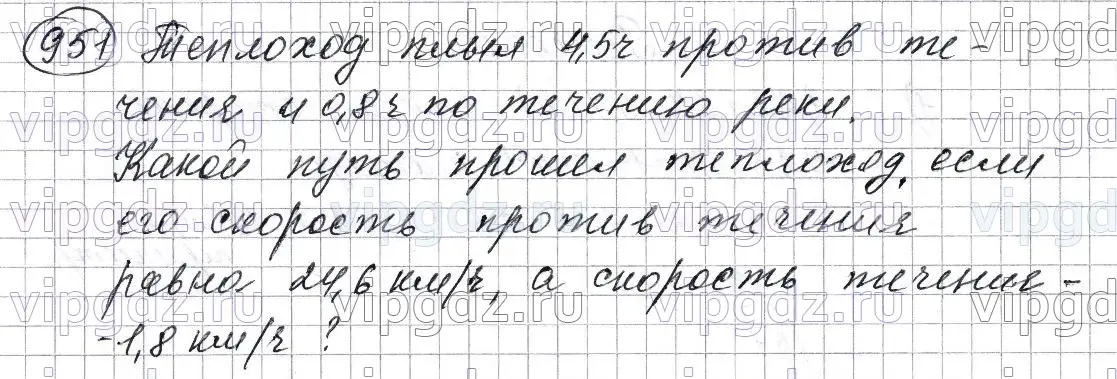 951 Теплоход плыл 4,5ч против те-
чения и 0,8ч по течению реки.
Какой путь прошел теплоход, если
его скорость против течения
равна 24,6 км/ч, а скорость течения -
- 1,8 км/ч ?